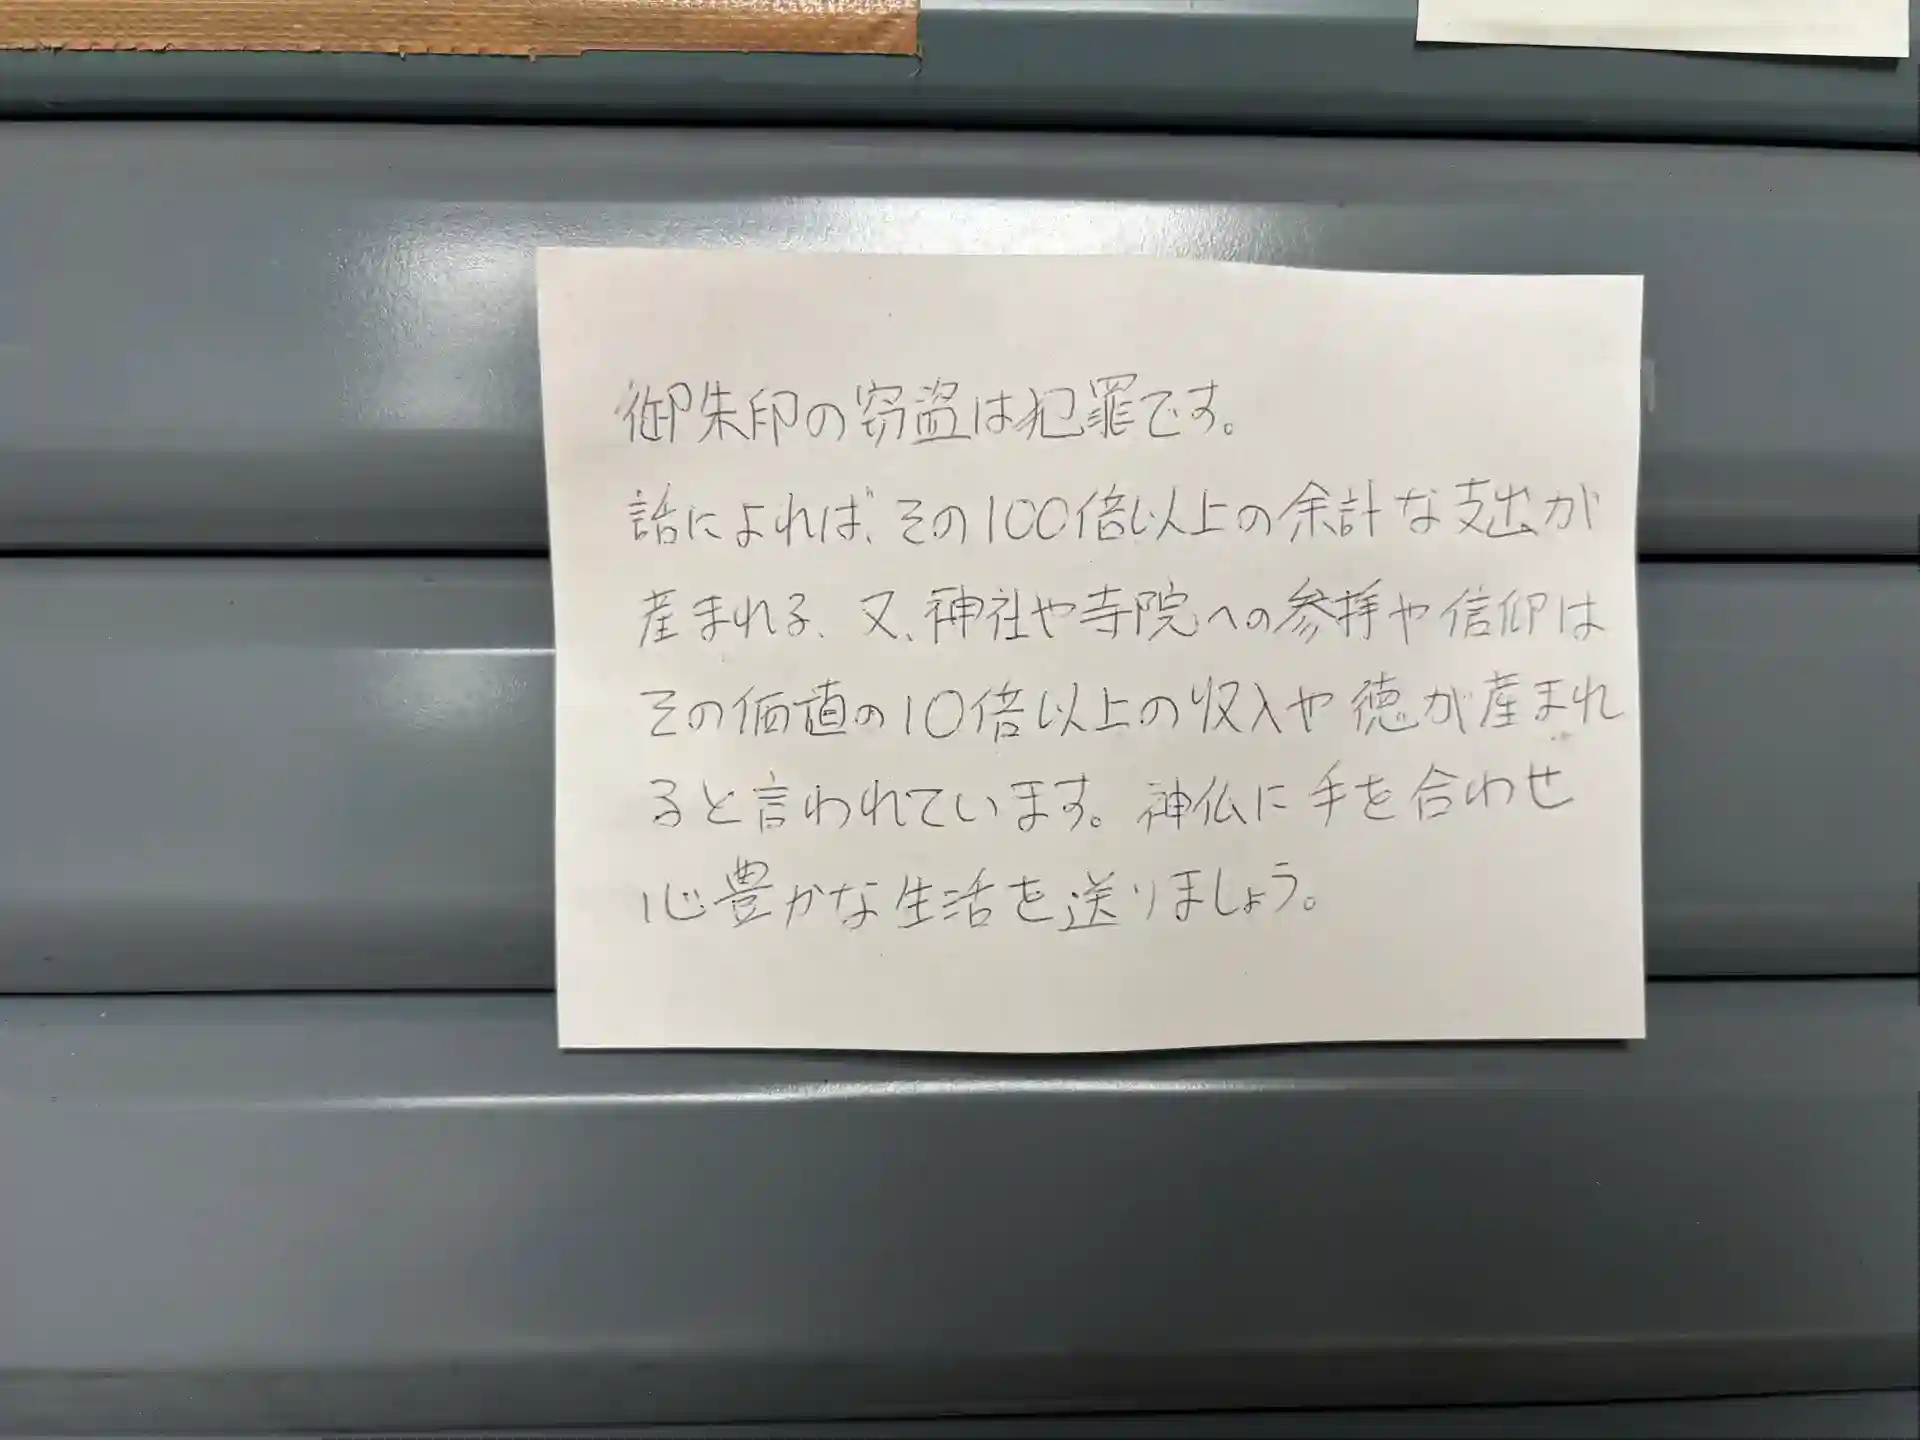 御朱印の窃盗は犯罪です。
話によれば、その100倍以上の余計な支出が
産まれる、又、神社や寺院への参拝や信仰は
その価値の10倍以上の収入や徳が産まれ
ると言われています。神仏に手を合わせ
心豊かな生活を送りましょう。